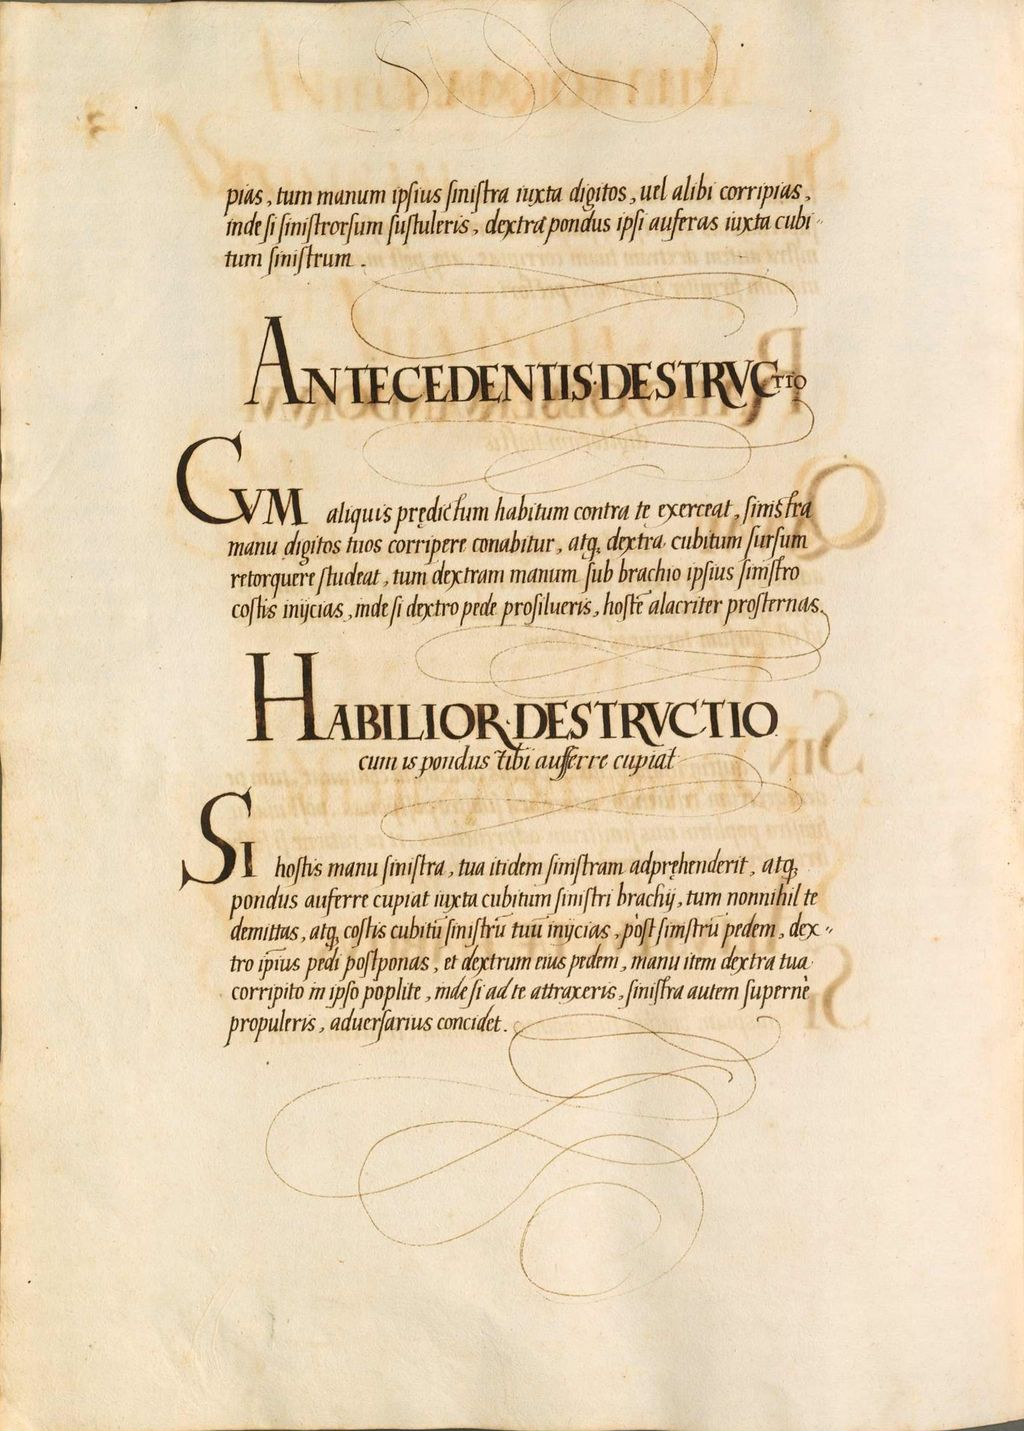 pias, tum manum ipſius ſiniſtra iuxta digitos, uel alibi corripias,
inde ſi ſiniſtrorſum ſuſtuleris, dextra pondus ipſi auferas iuxta cubi-
tum ſiniſtrum.
ANTECEDENTIS·DESTRVCTIO
CVM aliquis prędictum habitum contra te exerceat, ſiniſtra
manu digitos tuos corripere conabitur, atq; dextra cubitum ſurſum
retorquere ſtudeat, tum dextram manum ſub brachio ipſius ſiniſtro
coſtis inijcias, inde ſi dextro pede proſilueris, hoſtē alacriter proſternas.
HABILIOR·DESTRVCTIO
cum is pondus tibi aufferre cupiat
SI hoſtis manu ſiniſtra, tua itidem ſiniſtram adpręhenderit, atq;
pondus auferre cupiat iuxta cubitum ſiniſtri brachij, tum nonnihil te
demittas, atq; coſtis cubitū ſiniſtrū tuū inijcias, pòſt ſiniſtrū pedem, dex-
tro ip̄ius pedi poſtponas, et dextrum eius pedem, manu item dextra tua
corripito in ipſo poplite, inde ſi ad te attraxeris, ſiniſtra autem ſupernè
propuleris, aduerſarius concidet.